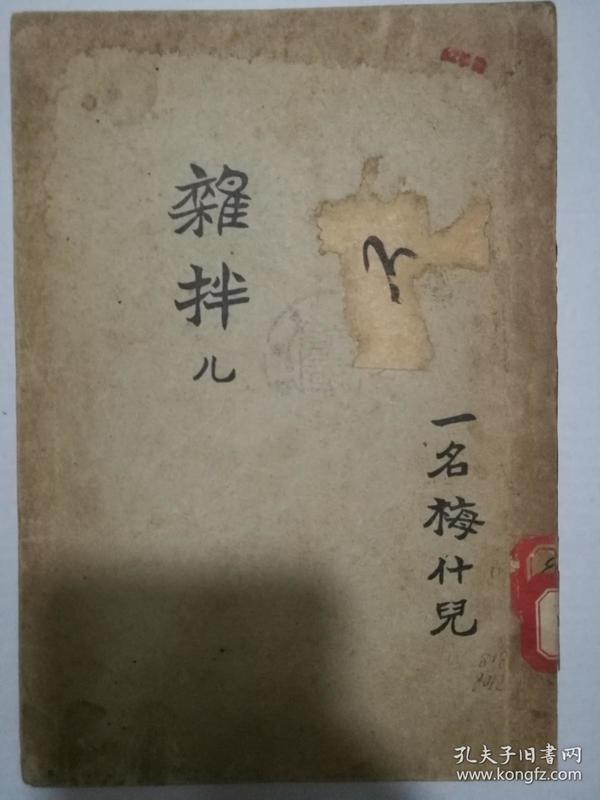 雜拌儿
一名梅什兒
孔夫子旧書网
www.kongfz.com